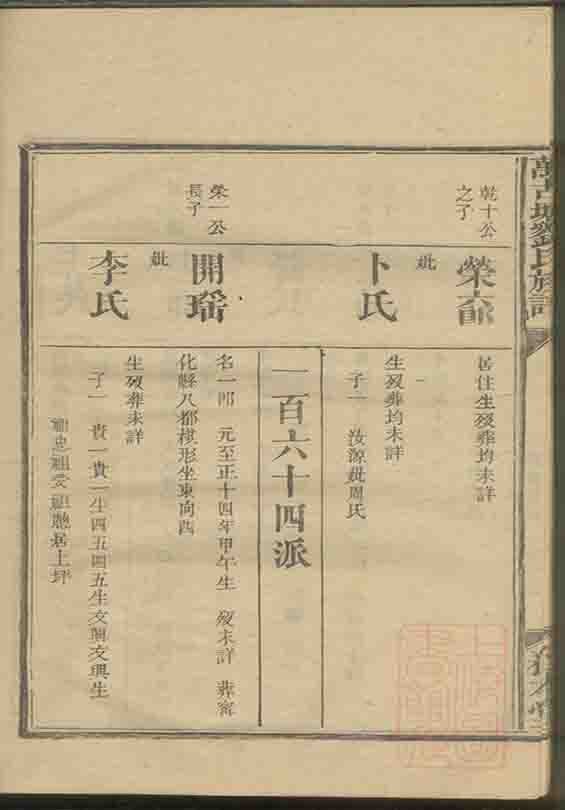 萬古 劉氏族譜
乾十公
之子
榮
居住生歿葬均未詳
妣
卜氏
生歿葬均未詳
子一 汝源妣周氏
一百六十四派
榮一公
長子
開瑶
名一郎 元至正十四年甲午生 歿未詳 葬寧
化縣八都 形坐東向西
妣
李氏
生歿葬未詳
子一 貴一貴一生四五四五生文興文興生
祖忠祖受祖 居上坪